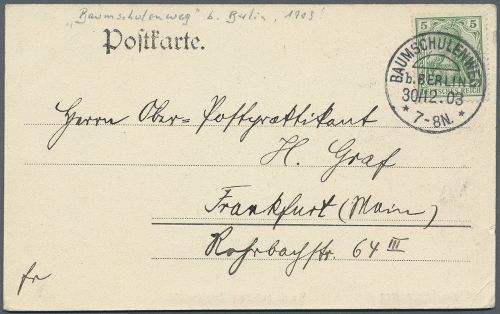 „Baumschulenweg" b. Berlin, 1903
Postkarte.
5 5
DEUTSCHES REICH
BAUMSCHULENWEG
b. BERLIN
30/12.03
* 7-8N. *
Herrn Ober-Postpraktikant
H. Graf
Frankfurt (Main)
Rohrbachstr. 64 III
fr